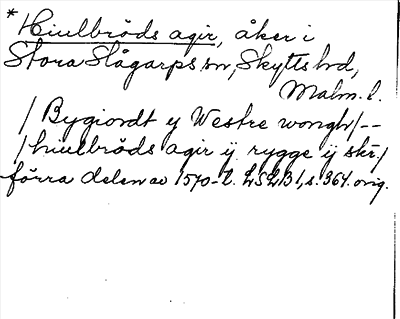 *Hiulbröds agir, åker i
Stora Slågarps sn, Skytts hd,
Malm. l.
/ Bygiordt ÿ Westre wongh/--
/hiulbröds agir ÿ rygge ÿ skr./
förra delen av 1570-t. LSLB1, s. 364. orig.